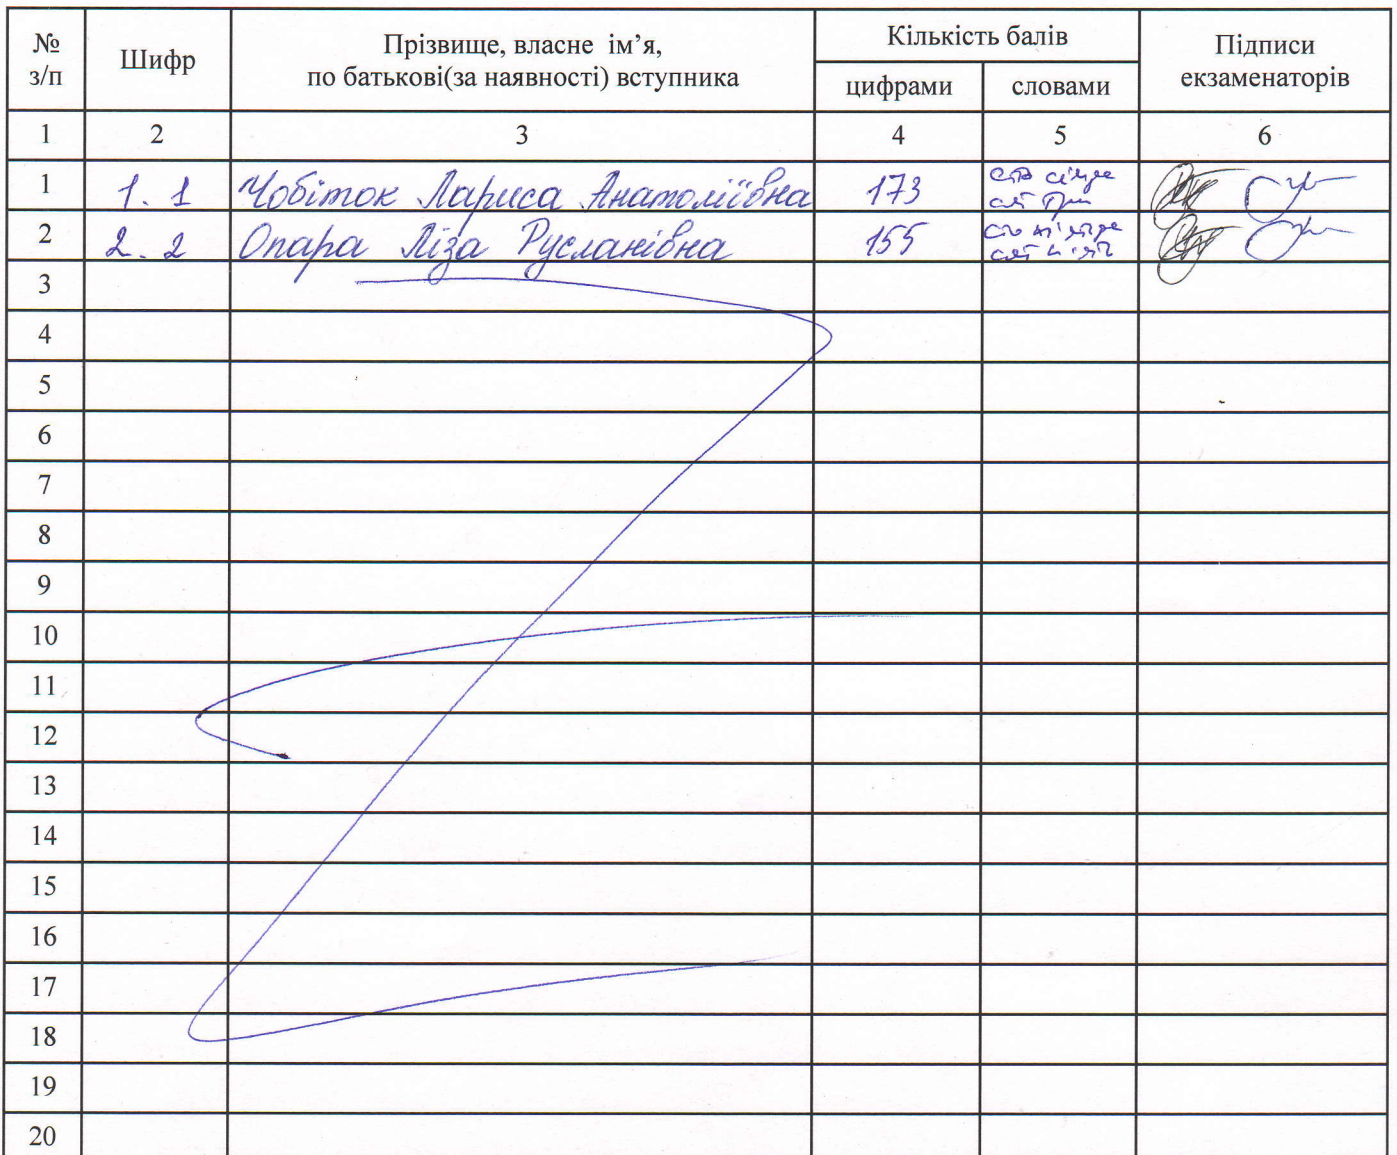 № з/п Шифр Прізвище, власне ім’я, по батькові(за наявності) вступника Кількість балів Підписи екзаменаторів
цифрами словами
1 2 3 4 5 6
1 1. 1 Чобіток Лариса Анатоліївна 173 сто сімде сят три
2 2. 2 Опара Ліза Русланівна 155 сто п'ятде сят п'ять
3
4
5
6
7
8
9
10
11
12
13
14
15
16
17
18
19
20